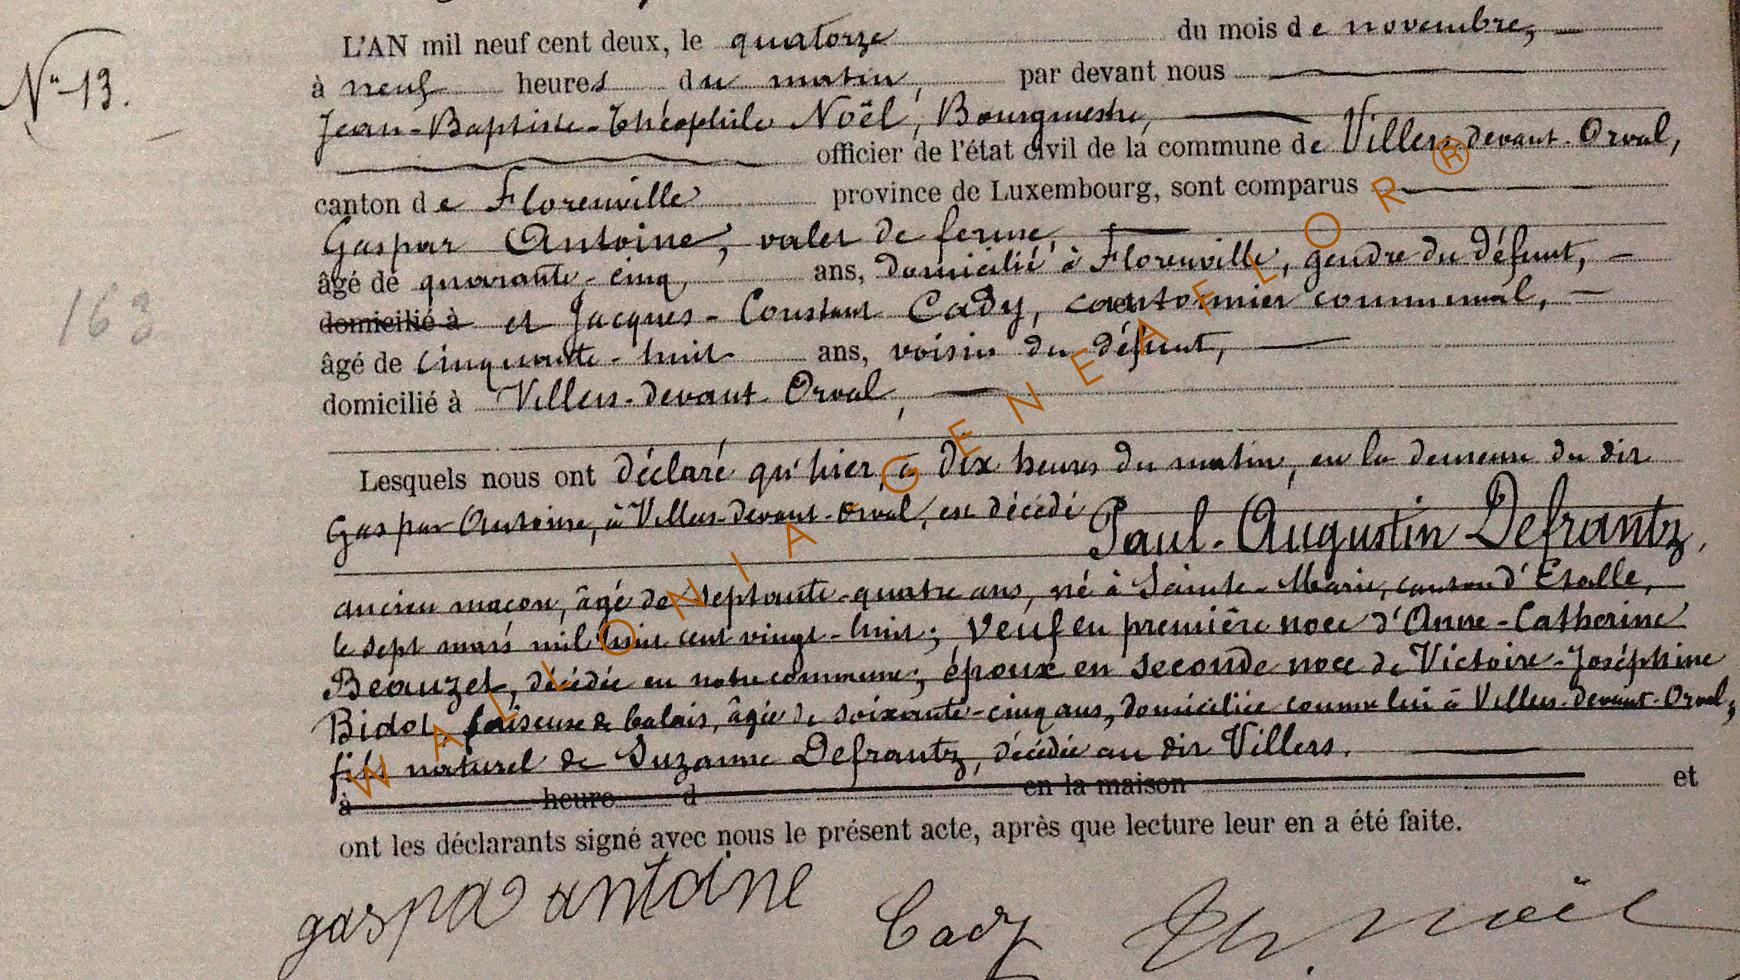 L'AN mil neuf cent deux, le quatorze du mois de novembre,
N° 13.
à neuf heures du matin, par devant nous
Jean-Baptiste-Théophile Noël, Bourgmestre,
officier de l'état civil de la commune de Villers-devant-Orval,
canton de Florenville province de Luxembourg, sont comparus
Gaspar Antoine, valet de ferme,
âgé de quarante-cinq ans, domicilié à Florenville, gendre du défunt,
163
domicilié à et Jacques-Constant Cady, cantonnier communal,
âgé de cinquante-huit ans, voisin du défunt,
domicilié à Villers-devant-Orval,
Lesquels nous ont déclaré qu'hier, à dix heures du matin, en la demeure du dit
Gaspar Antoine, à Villers-devant-Orval, est décédé Paul-Augustin Defrantz,
ancien maçon, âgé de septante-quatre ans, né à Sainte-Marie, canton d'Etalle,
le sept mars mil huit cent vingt-huit; veuf en première noce d'Anne-Catherine
Beauzet, décédée en notre commune; époux en seconde noce de Victoire-Joséphine
Bidot, faiseuse de balais, âgée de soixante-cinq ans, domiciliée comme lui à Villers-devant-Orval,
fils naturel de Suzanne Defrantz, décédée au dit Villers.
à heure d en la maison et
ont les déclarants signé avec nous le présent acte, après que lecture leur en a été faite.
gaspar antoine Cady Th. Noël
WALLONIA-GENEAFLOR®